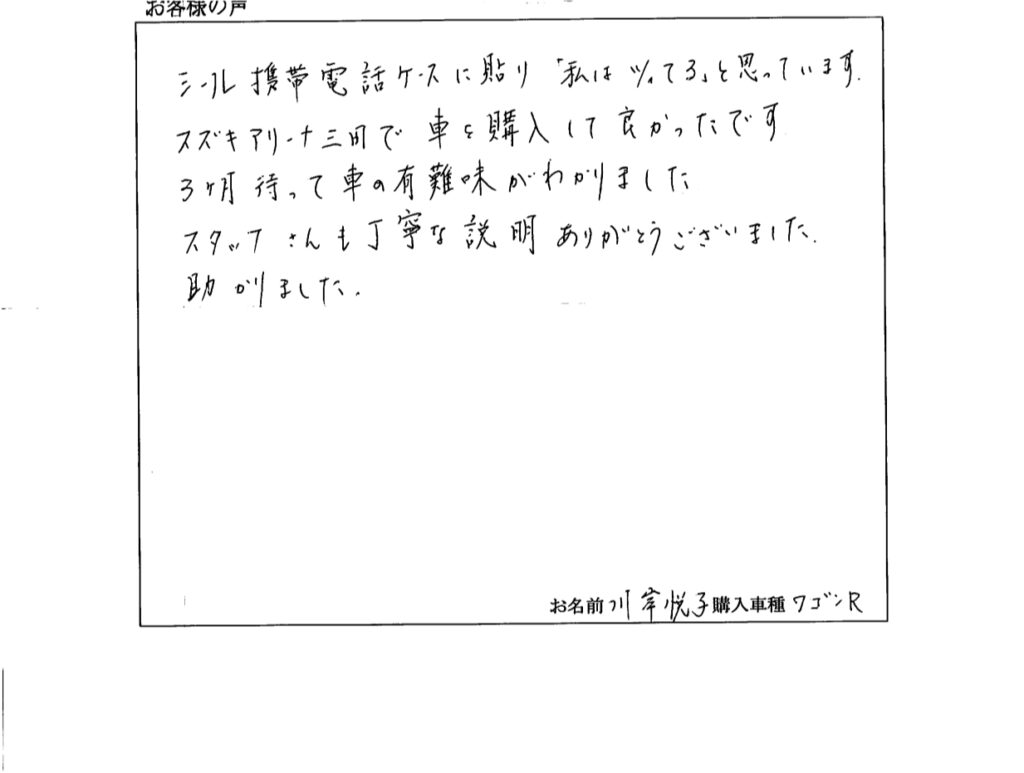 お客様の声
シール携帯電話ケースに貼り「私はツイてる」と思っています.
スズキアリーナ三田で車を購入して良かったです
3ヶ月待って車の有難味がわかりました
スタッフさんも丁寧な説明ありがとうございました.
助かりました.
お名前 川岸悦子 購入車種 ワゴンR